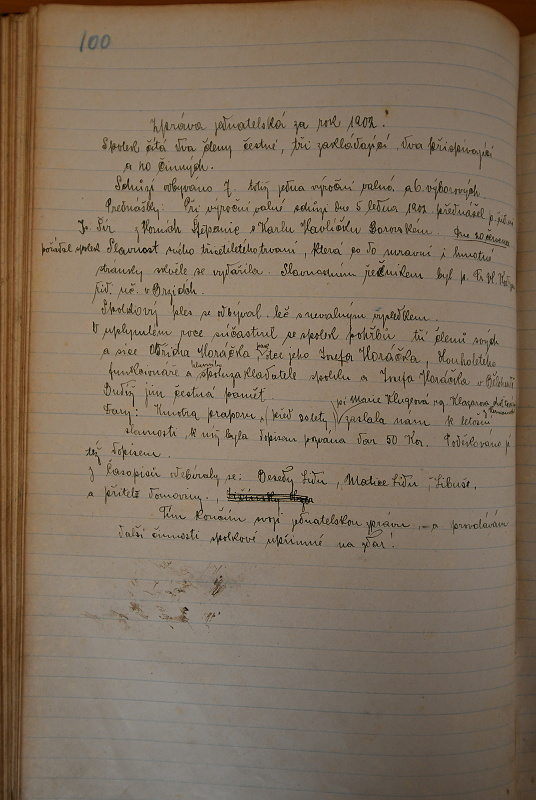 100
Zpráva jednatelská za rok 1902.
Spolek čítá dva členy čestné, tři zakládající, dva přispívající
a 40 činných.
Schůzí odbýváno 7. totiž jedna výroční valná a 6. výborových.
Přednášky: Při výroční valné schůzi dne 5 ledna 1902 přednášel p.
Jo. Šír z Horních Štěpanic o Karlu Havlíčku Borovském. Dne
pořádal spolek Slavnost svého třicetiletého trvání, která po do mravní i hmotné
stránky skvěle se vydařila. Slavnostním řečníkem byl p. Fr.
říd. uč. v
Spolkový ples se odbýval leč s nevalným výsledkem.
V uplynulém roce súčastnil se spolek pohřbů tří členů svých
a sice Oldřicha Horáčka, otce jeho Josefa Horáčka, mnoholetého
funkcionáře a spoluzakladatele spolku a Josefa Horáčka
Budiž jim čestná paměť.
Dary: Kmotra praporu, před 20 lety, pí Marie Klugová
zaslala nám k letošní
slavnosti, k níž byla dopisem pozvána dar 50 Kor. Poděkováno jí
též dopisem.
Z časopisů odebíraly se: Besedy Lidu, Matice Lidu, Libuše,
a přítel domoviny.
Tím končím svoji jednatelskou zprávu, a provolávám
další činnosti spolkové upřímné na zdar!